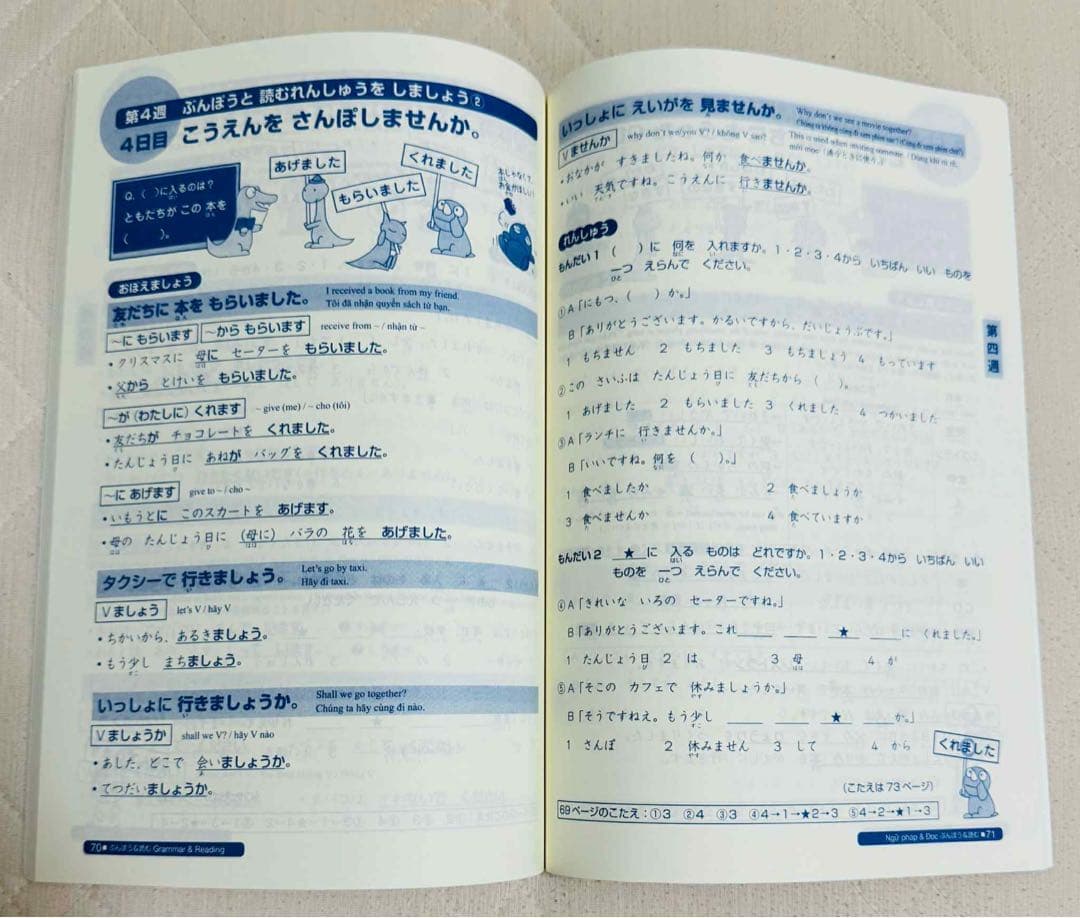 第4週 ぶんぽうと 読むれんしゅうを しましょう②
4日目 こうえんを さんぽしませんか。
Q.( )に入るのは?
はい
ともだちが この 本を
ほん
( )。
あげました
もらいました
くれました
本じゃなくて、
お金がほしい!
おぼえましょう
友だちに 本を もらいました。
とも ほん
I received a book from my friend.
Tôi đã nhận quyển sách từ bạn.
~に もらいます ~から もらいます receive from ~ / nhận từ ~
・クリスマスに 母に セーターを もらいました。
はは
・父から とけいを もらいました。
ちち
~が (わたしに) くれます ~ give (me) / ~ cho (tôi)
・友だちが チョコレートを くれました。
とも
・たんじょう日に あねが バッグを くれました。
び
~に あげます give to ~ / cho ~
・いもうとに このスカートを あげます。
・母の たんじょう日に (母に) バラの 花を あげました。
はは び はは はな
タクシーで 行きましょう。
い
Let's go by taxi.
Hãy đi taxi.
V ましょう let's V / hãy V
・ちかいから、あるきましょう。
・もう少し まちましょう。
すこ
いっしょに 行きましょうか。
い
Shall we go together?
Chúng ta hãy cùng đi nào.
V ましょうか shall we V? / hãy V nào
・あした、どこで 会いましょうか。
あ
・てつだいましょうか。
70 ぶんぽう&読む Grammar & Reading
いっしょに えいがを 見ませんか。
み
Why don't we see a movie together?
V ませんか why don't we/you V? / không V sao?
This is used when inviting someone.
・おなかが すきましたね。何か 食べませんか。
・いい 天気ですね。こうえんに 行きませんか。
れんしゅう
もんだい1 ( )に 何を 入れますか。1・2・3・4から いちばん いい ものを
なに い
一つ えらんで ください。
ひと
①A「にもつ、( )か。」
B「ありがとうございます。かるいですから、だいじょうぶです。」
1 もちません 2 もちました 3 もちましょう 4 もっています
②この さいふは たんじょう日に 友だちから ( )。
び とも
1 あげました 2 もらいました 3 くれました 4 つかいました
③A「ランチに 行きませんか。」
い
B「いいですね。何を ( )。」
なに
1 食べましたか 2 食べましょうか
た た
3 食べませんか 4 食べていますか
た た
もんだい2 ★ に 入る ものは どれですか。1・2・3・4から いちばん いい
はい
ものを 一つ えらんで ください。
ひと
④A「きれいな いろの セーターですね。」
B「ありがとうございます。これ____ ____ __★__ ____に くれました。」
1 たんじょう日 2 は 3 母 4 が
び はは
⑤A「そこの カフェで 休みましょうか。」
やす
B「そうですねえ。もう少し ____ ____ __★__ ____か。」
すこ
1 さんぽ 2 休みません 3 して 4 から
やす
くれました
(こたえは 73ページ)
69ページのこたえ:①3 ②4 ③3 ④4→1→★2→3 ⑤4→2→★1→3
第四週
Ngữ pháp & Đọc ぶんぽう&読む 71